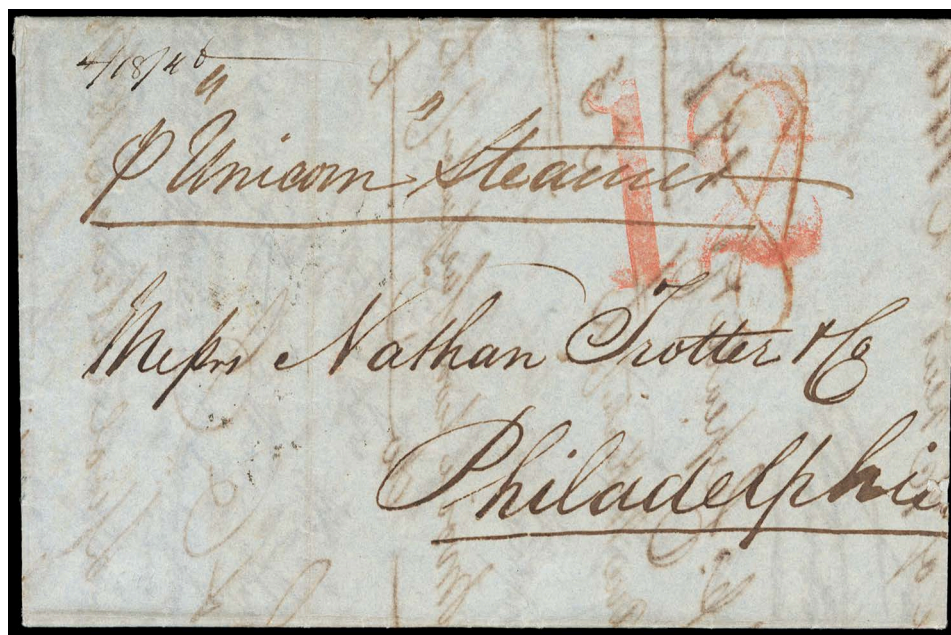 4/18/46
12
p "Unicorn" Steamer
Messrs Nathan Trotter & Co
Philadelphia